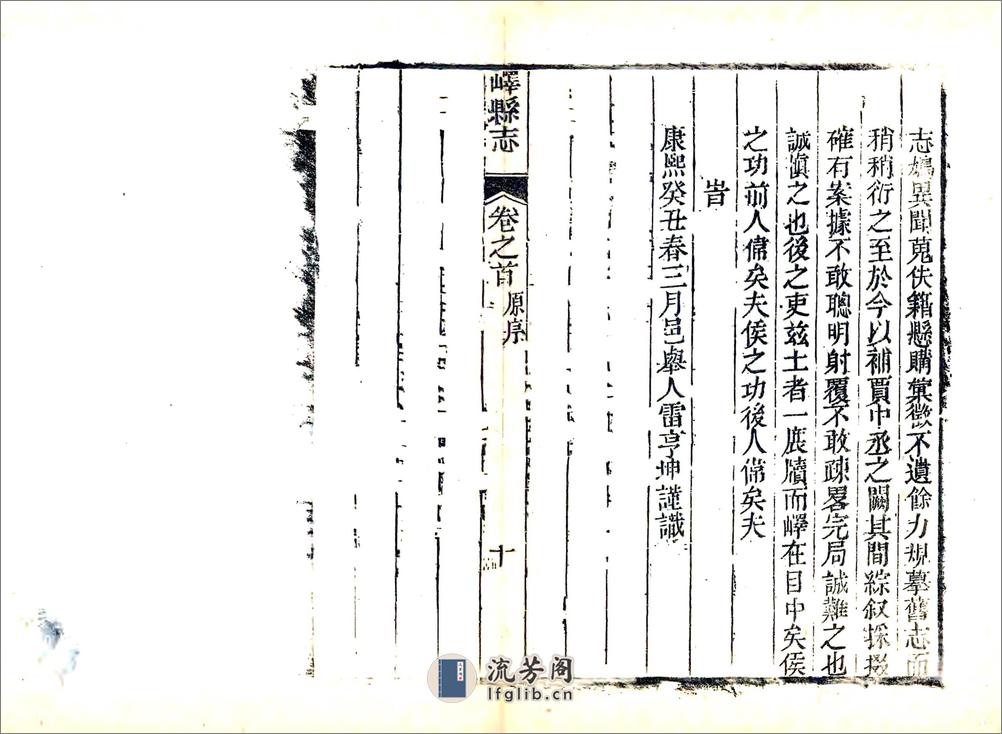 志鳩異聞蒐佚籍懸購彙徵不遺餘力規摹舊志而
稍稍衍之至於今以補賈中丞之闕其間綜叙採掇
確有案據不敢聰明射覆不敢疎畧完局誠難之也
誠慎之也後之吏玆土者一展牘而嶧在目中矣侯
之功前人備矣夫侯之功後人備矣夫
旹
康熙癸丑春三月邑舉人雷亨坤謹識
嶧縣志
卷之首
原序
十
流芳阁
lfglib.cn